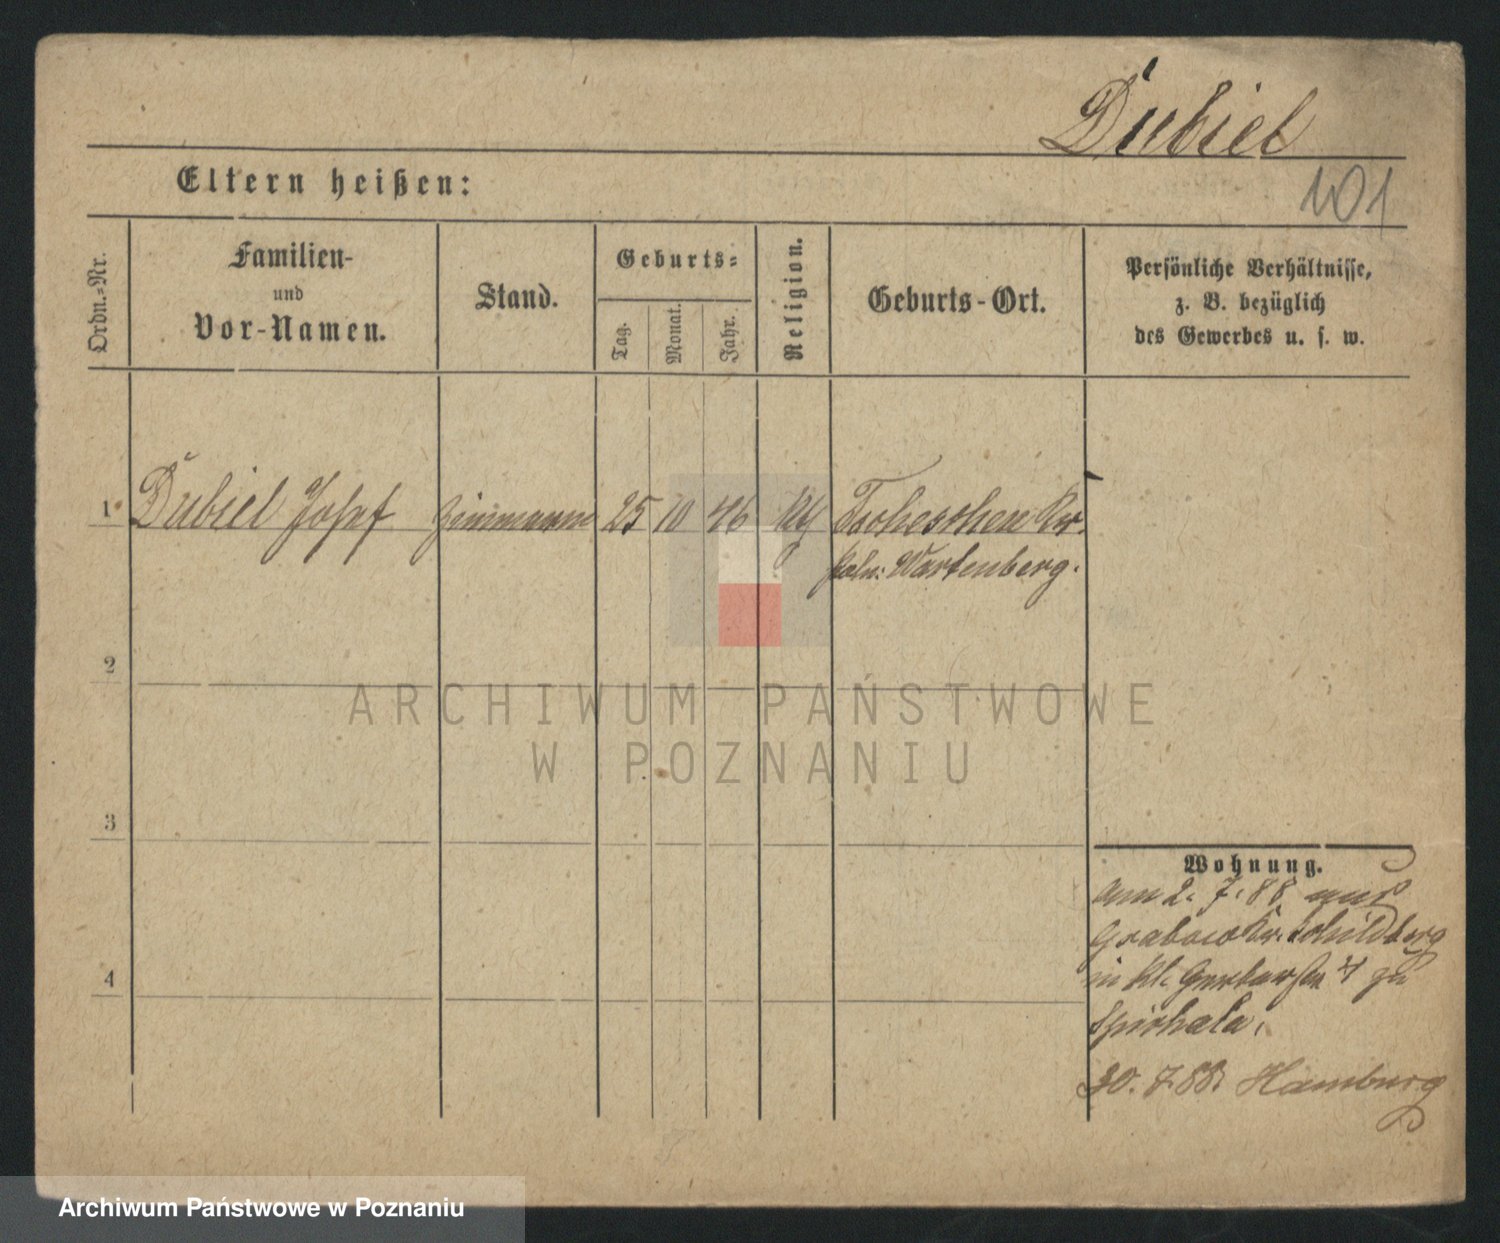 Dubiel
101
Eltern heißen:
Ordn.-Nr.
Familien-
und
Vor-Namen.
Stand.
Geburts-
Tag.
Monat.
Jahr.
Religion.
Geburts-Ort.
Persönliche Verhältnisse,
z. B. bezüglich
des Gewerbes u. s. w.
1 Dubiel Josef Zimmerm 25 10 46 kth Tscheschen Kr.
Poln: Wartenberg.
2
3
4
Wohnung.
am 2. 7. 88 aus
Grabow Kr. Schildberg
in Kl. Gerberstr 4 zu
Spichala.
30. 7. 88. Hamburg
ARCHIWUM PAŃSTWOWE
W POZNANIU
Archiwum Państwowe w Poznaniu